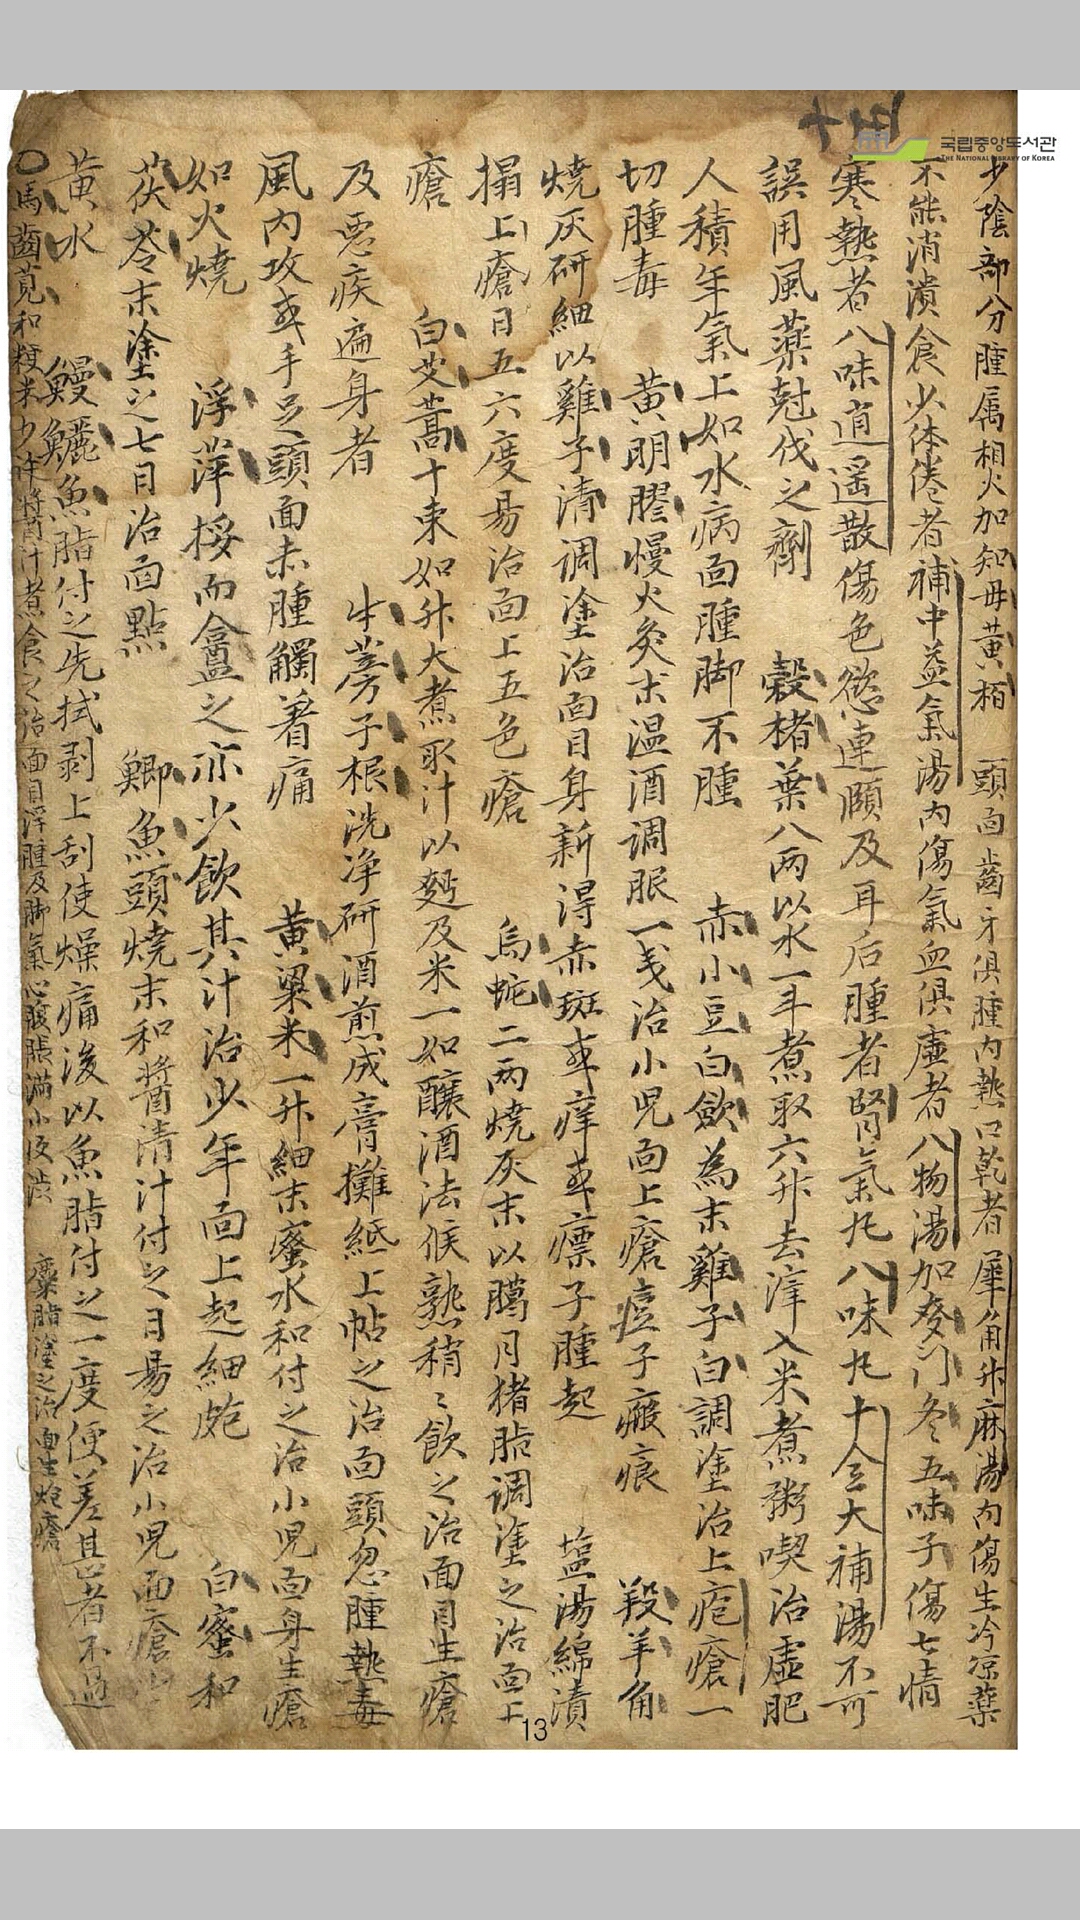 국립중앙도서관
THE NATIONAL LIBRARY OF KOREA
少陰部分腫属相火加知母黃栢 頭面齒牙俱腫內熱口乾者犀角升麻湯內傷生冷凉薬
不能消潰食少体倦者補中益氣湯內傷氣血俱虛者八物湯加麥门冬五味子傷七情
寒熱者八味逍遥散傷色慾連頤及耳后腫者腎氣丸八味丸十全大補湯不可
誤用風薬尅伐之劑 穀楮葉八两以水一斗煮取六升去滓入米煮粥喫治虛肥
人積年氣上如水病面腫脚不腫 赤小豆白斂為末雞子白調塗治上疱瘡一
切腫毒 黃明膠慢火灸末温酒调服一戔治小児面上瘡痘子瘢痕 羖羊角
燒灰研細以雞子清調塗治面目身新得赤斑或痒或瘭子腫起 塩湯綿漬
搨上瘡日五六度易治面上五色瘡 烏蛇二两燒灰末以臈月猪脂调塗之治面上
瘡 白艾蒿十束如升大煮取汁以麯及米一如釀酒法候熟稍〻飲之治面目生瘡
及惡疾遍身者 牛蒡子根洗净研酒煎成膏攤紙上帖之治面頭忽腫熱毒
風內攻或手足頭面赤腫觸着痛 黃粱米一升細末蜜水和付之治小児面身生瘡
如火燒 浮萍挼而盦之亦少飲其汁治少年面上起細皰 白蜜和
茯苓末塗之七日治面䵟 鯽魚頭燒末和醬清汁付之日易之治小児面瘡
黃水 鰻鱺魚脂付之先拭剥上刮使燥痛後以魚脂付之一度便差甚者不過
○馬齒莧和粳米少許醬汁煮食之治面目浮腫及脚氣心腹脹滿小便澁 麋脂塗之治面生疱瘡
13